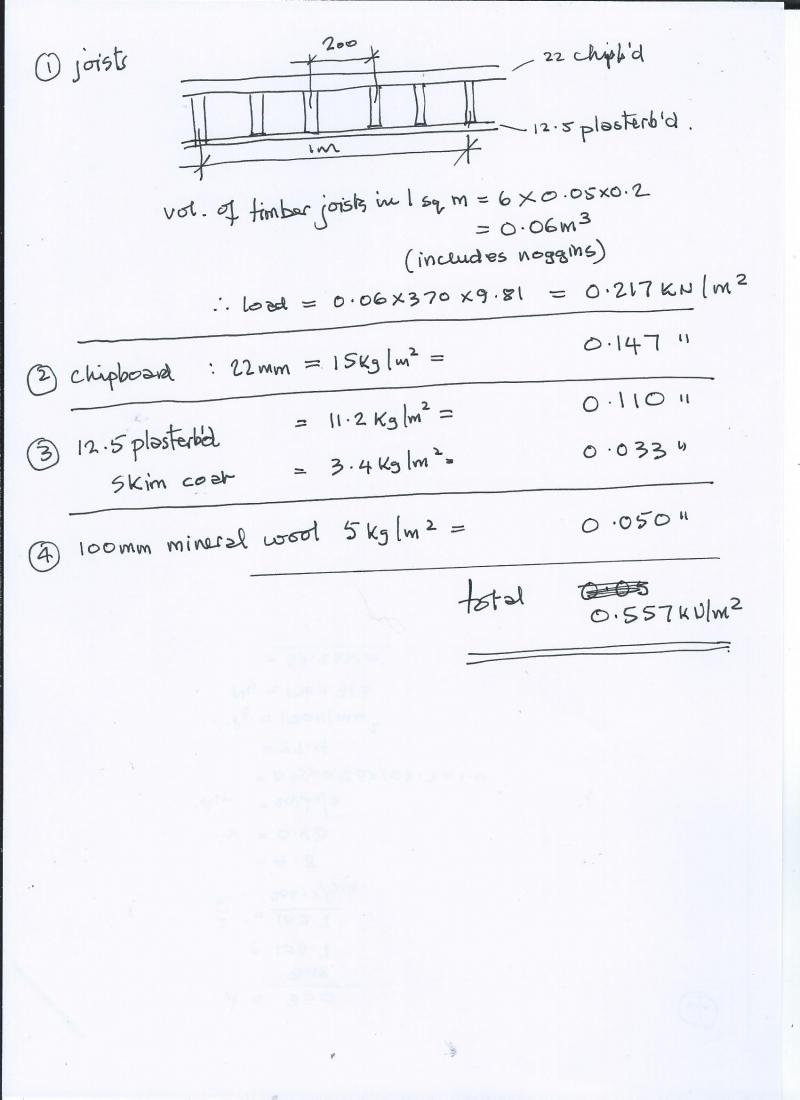 ① joists
200
22 chipb'd
12.5 plasterb'd.
1m
vol. of timber joists in 1 sq m = 6 × 0.05 × 0.2
= 0.06m³
(includes noggins)
∴ load = 0.06 × 370 × 9.81 = 0.217 KN/m²
② chipboard : 22mm = 15Kg/m² = 0.147 "
③ 12.5 plasterb'd = 11.2 Kg/m² = 0.110 "
Skim coat = 3.4 Kg/m² = 0.033 "
④ 100mm mineral wool 5 Kg/m² = 0.050 "
total 0.05
0.557 KN/m²